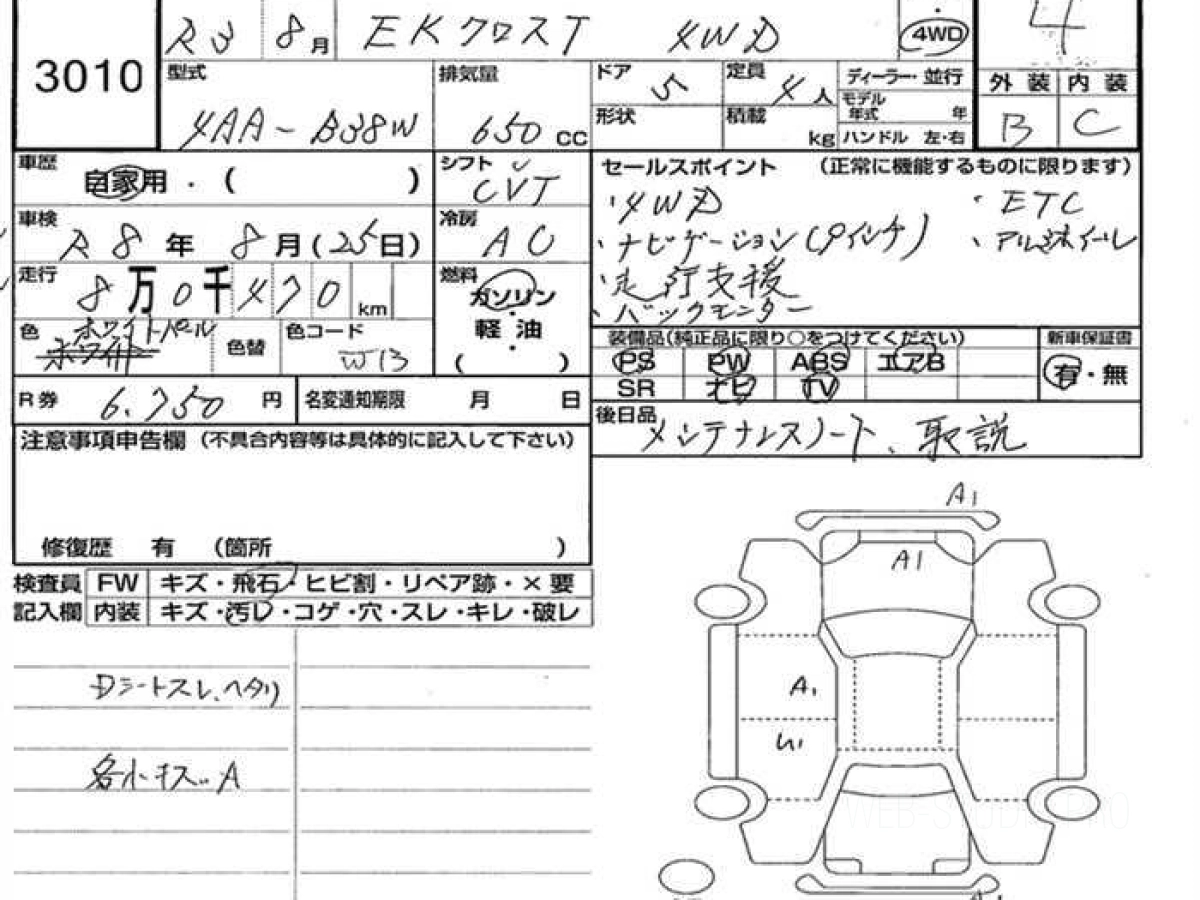 R3 8月 EKクロスT 4WD ・ 4WD 4
3010
型式 4AA-B38W
排気量 650 cc
ドア 5
定員 4人
形状
積載 kg
ディーラー・並行
モデル年式 年
ハンドル 左・右
外装 内装
B C
車歴 自家用 ・ ( )
シフト CVT
車検 R8年 8月(25日)
冷房 AC
走行 8万0千470 km
燃料 ガソリン
軽油
・
( )
色 ホワイトパール
ホワイト
色替
色コード W13
R券 6.750 円
名変通知期限 月 日
セールスポイント (正常に機能するものに限ります)
・4WD ・ETC
・ナビゲーション(9インチ) ・アルミホイール
・走行支援
・バックモニター
装備品(純正品に限り○をつけてください) 新車保証書
PS PW ABS エアB 有・無
SR ナビ TV
後日品 メンテナンスノート、取説
注意事項申告欄 (不具合内容等は具体的に記入して下さい)
修復歴 有 (箇所 )
検査員 FW キズ・飛石・ヒビ割・リペア跡・×要
記入欄 内装 キズ・汚レ・コゲ・穴・スレ・キレ・破レ
Dシートスレ、ヘタリ
各小キズ A
A1
A1
A1
U1
WEB-STUDIO.PRO